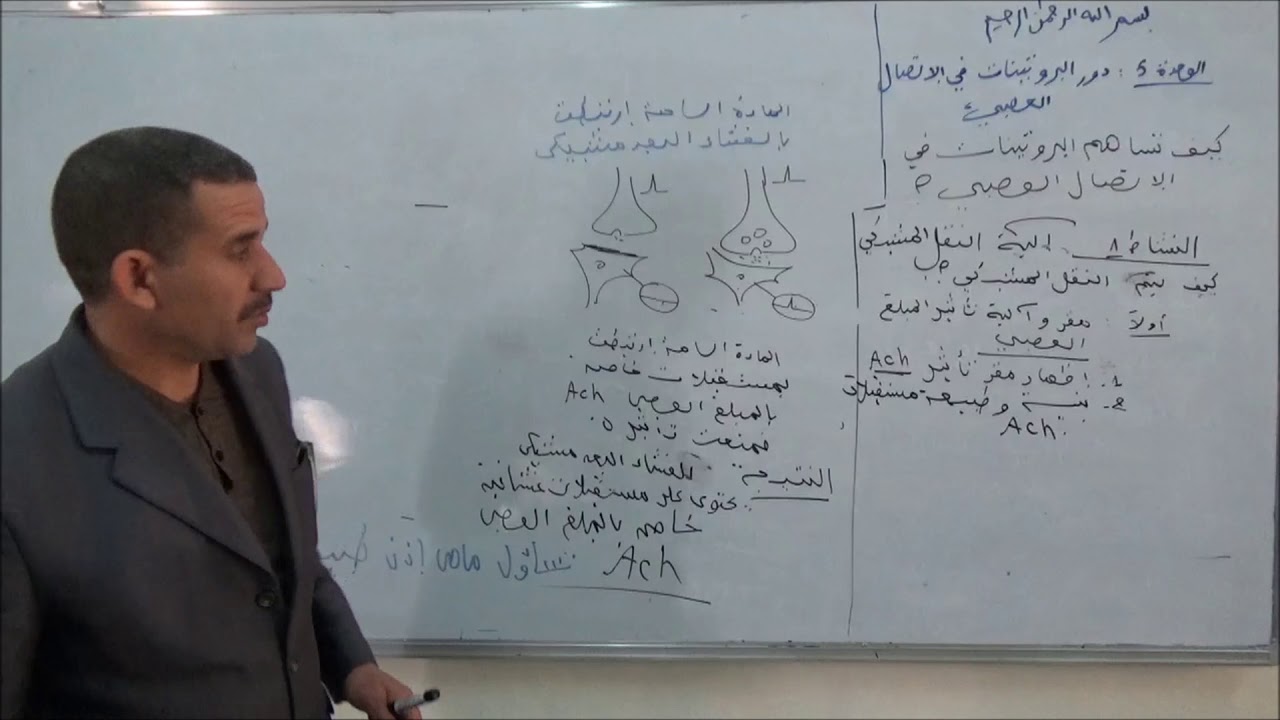 بسم الله الرحمن الرحيم
الوحدة 5 : دور البروتينات في الاتصال
العصبي
كيف تساهم البروتينات في
الاتصال العصبي ؟
النشاط 1 الية النقل المشبكي
كيف يتم النقل المشبكي ؟
أولا : مقر وآلية تأثير المبلغ
العصبي
1. إظهار مقر تأثير Ach
2. بنية وطبيعة مستقبلات
Ach
المادة السامة ارتبطت
بالغشاء البعد مشبكي
المادة السامة ارتبطت
بمستقبلات خاصة
بالمبلغ العصبي Ach
فمنعت تأثيره
النتيجة : للغشاء البعد مشبكي
يحتوي على مستقبلات غشائية
خاصة بالمبلغ العصبي
Ach
تساؤل ماهي إذن